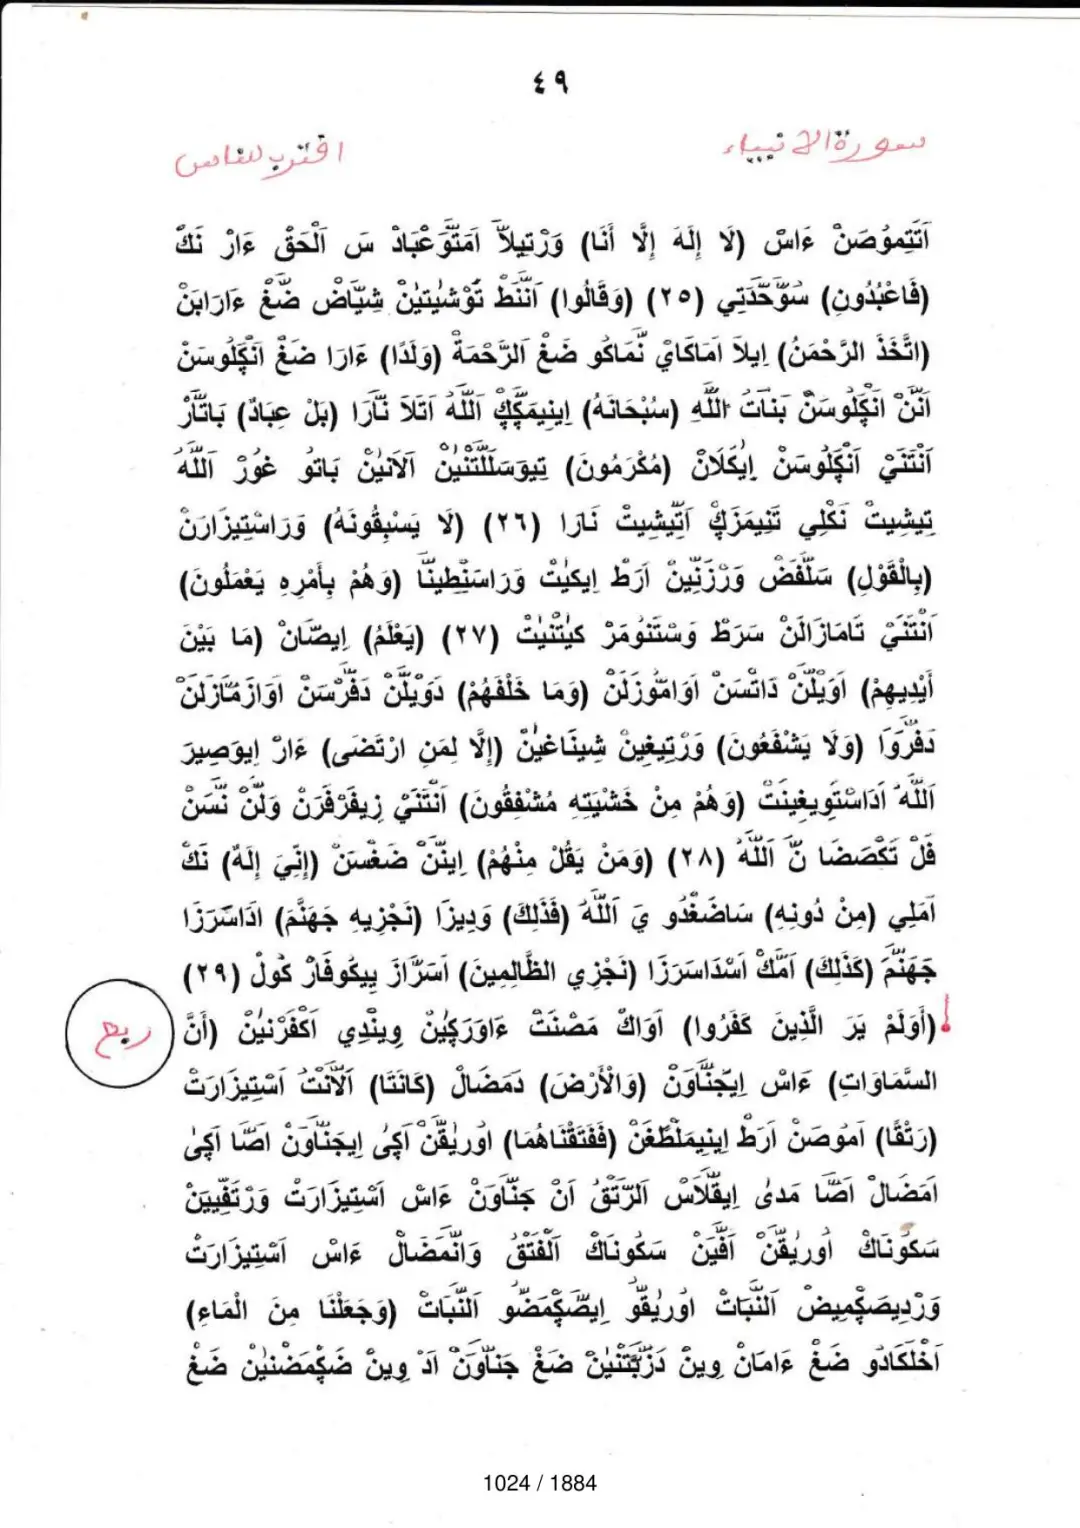 ٤٩
سورة الانبياء
اقترب للناس
اَتَّتِمُوصَنْ ءَاسْ (لَا إِلَهَ إِلَّا أَنَا) وَرْتِيلاَ اَمَتَّوَعْبَادْ سَ اَلْحَقْ ءَارْ نَكْ
(فَاعْبُدُونِ) سُوَحَّدَتِي (٢٥) (وَقَالُوا) اَنَّنَطْ تُوشَيْتِيْنْ شِيَّاضْ ضَغْ ءَارَابَنْ
(اتَّخَذَ الرَّحْمَنُ) اِيلاَ اَمَاكَايْ نَّمَاكُو ضَغْ اَلرَّحْمَةْ (وَلَدًا) ءَارَا ضَغْ اَنْكَلُوسَنْ
اَنَّنْ اَنْكَلُوسَنْ بَنَاتُ اللَّهِ (سُبْحَانَهُ) اِينِيمَكَّكْ اَللَّهْ اَتَلاَ نَّارَا (بَلْ عِبَادٌ) بَاتَّارْ
اَنْتَنَيْ اَنْكَلُوسَنْ اِيكَلاَنْ (مُكْرَمُونَ) تِيوَسَلَّتْنَيْنْ اَلاَنَيْنْ بَاتو غُورْ اَللَّهْ
تِيشِيتْ نَكْلِي تَنِيمَزَكْ اَتِّيشِيتْ نَارَا (٢٦) (لَا يَسْبِقُونَهُ) وَرَاسْتِيزَارَنْ
(بِالْقَوْلِ) سَلَّفَضْ وَرْزَنِّيْنْ اَرَطْ اِيكَيْتْ وَرَاسَنْطِينَّا (وَهُمْ بِأَمْرِهِ يَعْمَلُونَ)
اَنْتَنَيْ تَامَازَالَنْ سَرَطْ وَسْتَنُومَرْ كَيْتَنَيْتْ (٢٧) (يَعْلَمُ) اِيصَّانْ (مَا بَيْنَ
أَيْدِيهِمْ) اَوَيلَّنْ دَاتْسَنْ اَوَامُوزَلَنْ (وَمَا خَلْفَهُمْ) دَوَيلَّنْ دَفَّرْسَنْ اَوَازَمَّازَلَنْ
دَفَّرْوَا (وَلَا يَشْفَعُونَ) وَرْتِيغِينْ شِينَاغَيْنْ (إِلَّا لِمَنِ ارْتَضَى) ءَارْ اِيوَصِيرَ
اَللَّهْ اَدَاسْتَوِيغِينَتْ (وَهُمْ مِنْ خَشْيَتِهِ مُشْفِقُونَ) اَنْتَنَيْ زِيفَرْفَرَنْ وَلَّنْ نَّسَنْ
فَلْ تَكْصَضَا نَّ اَللَّهْ (٢٨) (وَمَنْ يَقُلْ مِنْهُمْ) اِينَّنْ ضَغْسَنْ (إِنِّيَ إِلَهٌ) نَكْ
اَمَلِي (مِنْ دُونِهِ) سَاضَغْدُو يَ اَللَّهْ (فَذَلِكَ) وَدِيزَا (نَجْزِيهِ جَهَنَّمَ) اَدَاسَرَزَا
جَهَنَّمَ (كَذَلِكَ) اَمَّكْ اَسْدَاسَرَزَا (نَجْزِي الظَّالِمِينَ) اَسَرَّازَ يِيكُوفَارْ كُولْ (٢٩)
(أَوَلَمْ يَرَ الَّذِينَ كَفَرُوا) اَوَاكْ مَصْنَتْ ءَاوَرَكَيْنْ وِينْدِي اَكَفَرْنَيْنْ (أَنَّ
ربع
السَّمَاوَاتِ) ءَاسْ اِيجَنَّاوَنْ (وَالْأَرْضَ) دَمَضَالْ (كَانَتَا) اَلاَنَتْ اَسْتِيزَارَتْ
(رَتْقًا) اَمُوصَنْ اَرَطْ اِينِيمَلْطَغَنْ (فَفَتَقْنَاهُمَا) اُورِيقَنْ اَكَىْ اِيجَنَّاوَنْ اَصَّا اَكَىْ
اَمَضَالْ اَصَّا مَدَىْ اِيقَّلاَسْ اَلرَّتْقُ اَنْ جَنَّاوَنْ ءَاسْ اَسْتِيزَارَتْ وَرْتَفَّيْيَنْ
سَكُونَاكْ اُورِيقَنْ اَفَّيَنْ سَكُونَاكْ اَلْفَتْقُ وَاَنَّمَضَالْ ءَاسْ اَسْتِيزَارَتْ
وَرْدِيصَكَمِيضْ اَلنَّبَاتْ اُورِيقَوْ اِيصَّكَمَضُو اَلنَّبَاتْ (وَجَعَلْنَا مِنَ الْمَاءِ)
اَخْلَكَادُو ضَغْ ءَامَانْ وِينْ دَزَّبَّتْنَيْنْ ضَغْ جَنَّاوَنْ اَدْ وِينْ ضَكَمَضْنَيْنْ ضَغْ
1024 / 1884